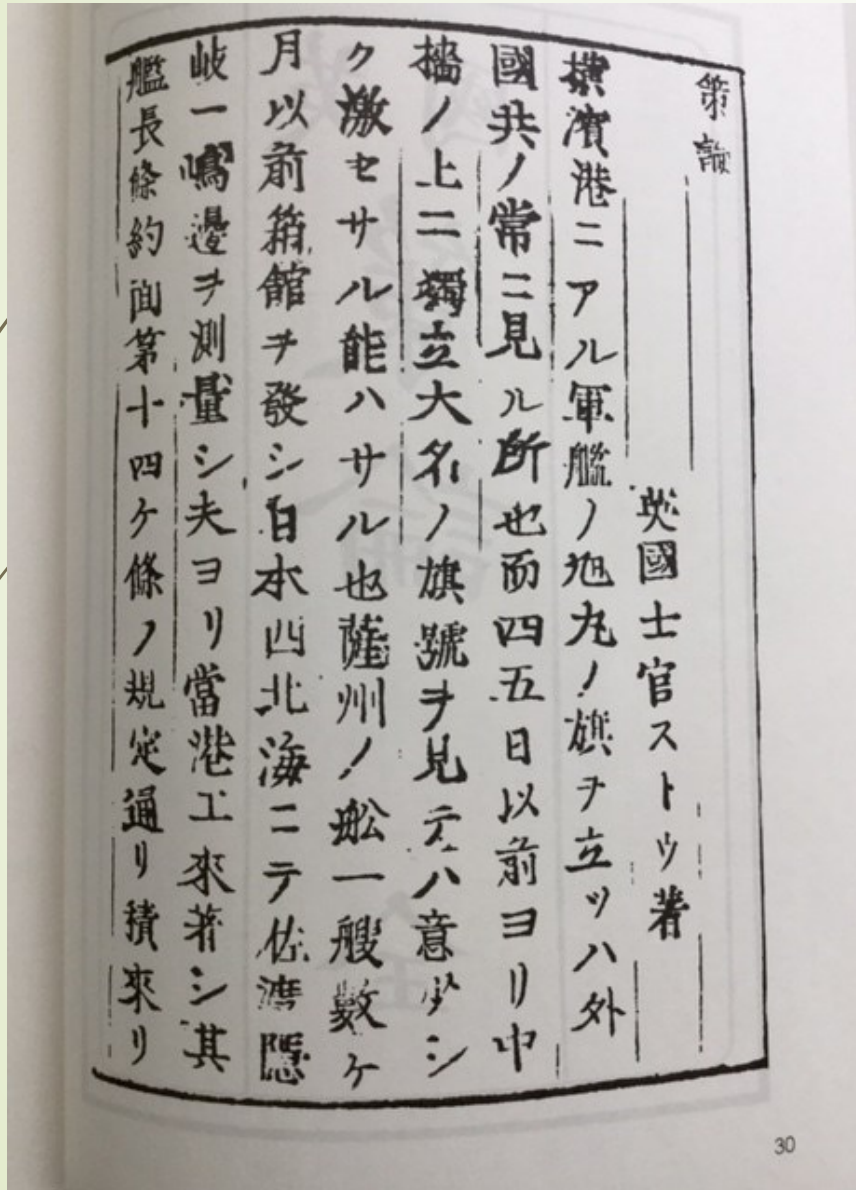 策論
英國士官ストウ著
横濱港ニアル軍艦ノ旭丸ノ旗ヲ立ツハ外
國共ノ常ニ見ル所也而四五日以前ヨリ中
檣ノ上ニ獨立大名ノ旗號ヲ見テハ意少シ
ク激セサル能ハサル也薩州ノ舩一艘數ケ
月以前箱館ヲ發シ日本西北海ニテ佐渡隱
岐一嶋邊ヲ測量シ夫ヨリ當港エ來著シ其
艦長條約面第十四ケ條ノ規定通リ積來リ
30